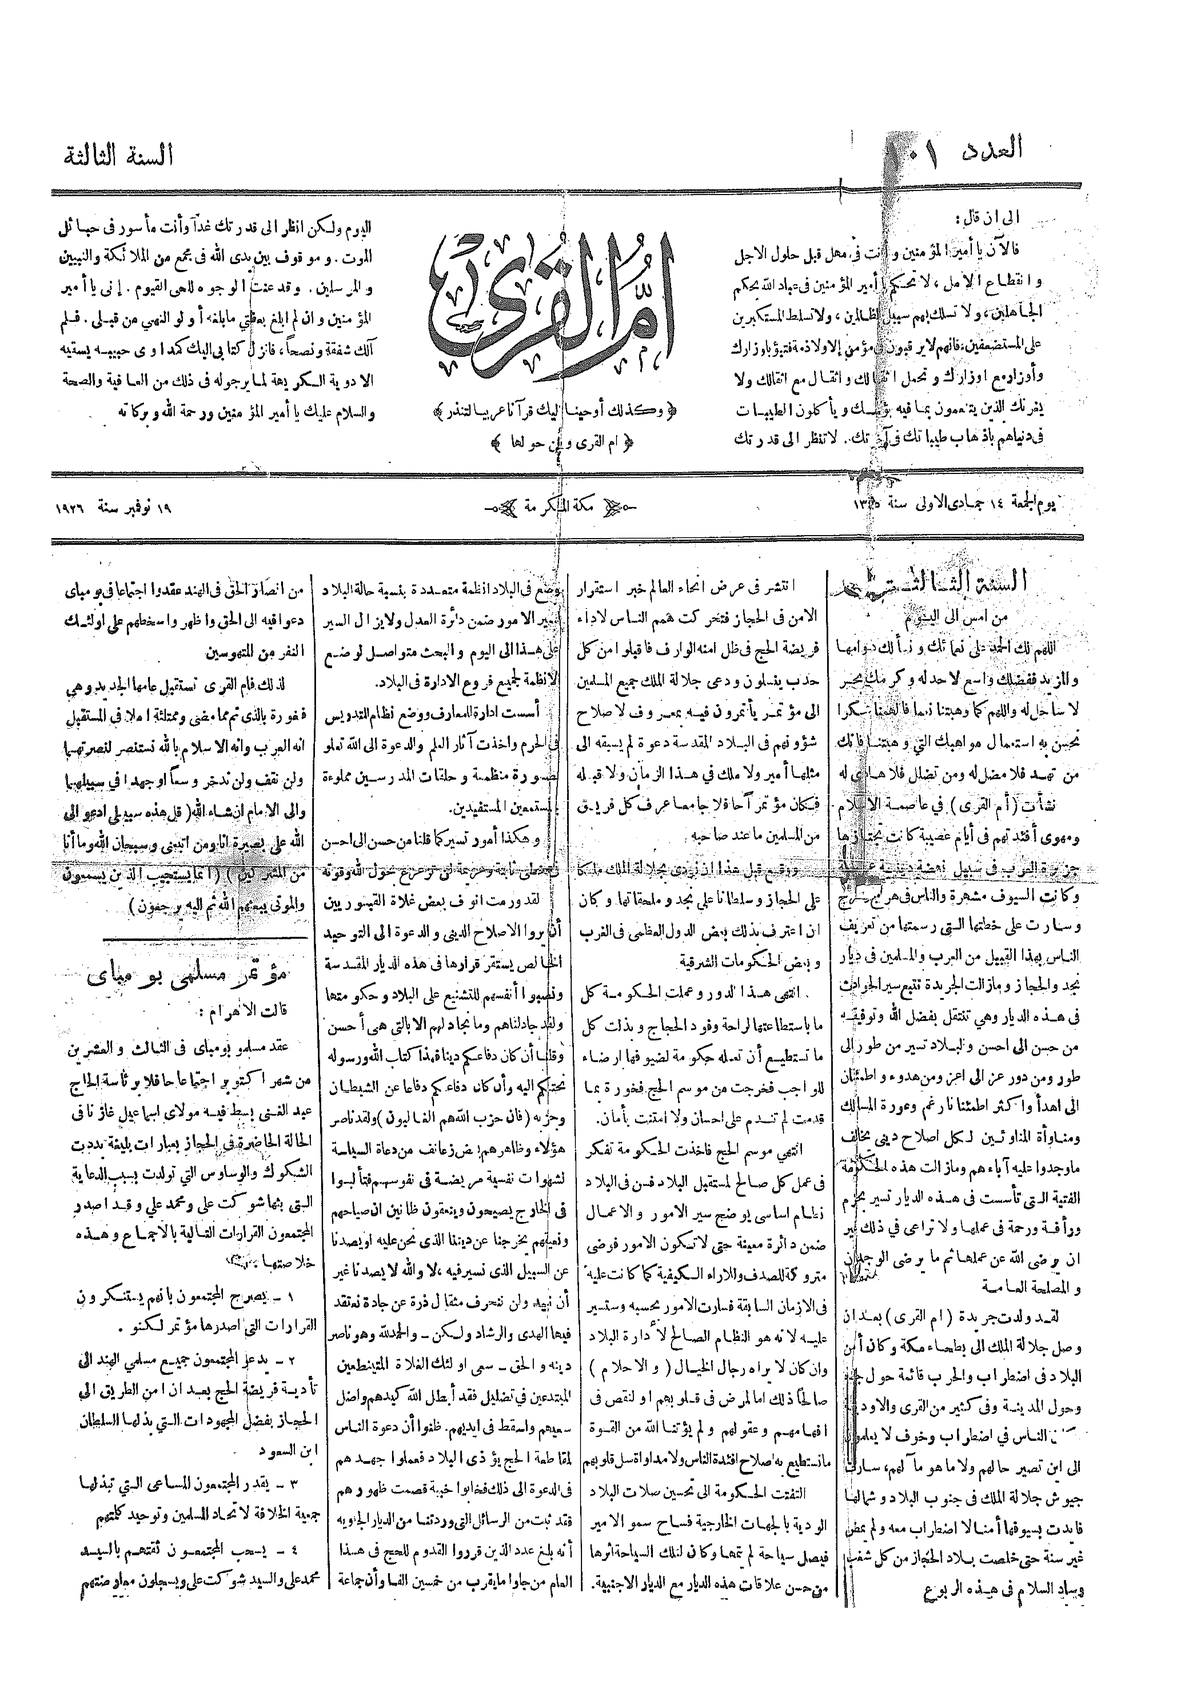 العدد ١٠١
السنة الثالثة
الى ان قال:
فالآن يا أمير المؤمنين وأنت فى مهل قبل حلول الاجل
وانقطاع الامل ، لا تحكم يا أمير المؤمنين فى عباد الله بحكم
الجاهلين ، ولا تسلك بهم سبيل الظالمين ، ولا تسلط المستكبرين
على المستضعفين، فانهم لا يرقبون فى مؤمن إلا ولا ذمة فتبوء باوزارك
وأوزار مع اوزارك وتحمل اثقالك واثقال مع اثقالك ولا
يغرنك الذين يتنعمون بما فيه بؤسك ويأكلون الطيبات
فى دنياهم باذهاب طيباتك فى آخرتك . لا تنظر الى قدرتك
أم القرى
﴿ وكذلك أوحينا اليك قرآنا عربيا لتنذر ﴾
﴿ ام القرى ومن حولها ﴾
اليوم ولكن انظر الى قدرتك غداً وأنت مأسور فى حبائل
الموت . وموقوف بين يدى الله فى مجمع من الملائكة والنبيين
والمرسلين . وقد عنت الوجوه للحى القيوم . إنى يا أمير
المؤمنين وان لم ابلغ بعظتي مابلغه أولو النهي من قبلى . فلم
آلك شفقة ونصحاً، فانزل كتابى اليك كمداوى حبيبه يسقيه
الادوية الكريهة لما يرجوله فى ذلك من العافية والصحة
والسلام عليك يا أمير المؤمنين ورحمة الله وبركاته
يوم الجمعة ١٤ جمادى الاولى سنة ١٣٤٥
مكة المكرمة
١٩ نوفمبر سنة ١٩٢٦
السنة الثالثة
من امس الى اليوم
اللهم لك الحمد على نعمائك ونسألك دوامها
والمزيد ففضلك واسع لا حد له وكرمك بحر
لا ساحل له واللهم كما وهبتنا نعما فألهمنا شكرا
نحسن به استعمال مواهبك التي وهبتنا فانك
من تهد فلا مضل له ومن تضلل فلا هادي له
نشأت (أم القرى) في عاصمة الاسلام
ومهوى أفئدتهم فى أيام عصيبة كانت تجتازها
جزيرة العرب فى سبيل نهضة دينية
وكانت السيوف مشهرة والناس فى هرج ومرج
وسارت على خطتها التى رسمتها من تعريف
الناس بهذا القبيل من العرب والمسلمين فى ديار
نجد والحجاز ومازالت الجريدة تتبع سير الحوادث
فى هذه الديار وهي تنتقل بفضل الله وتوفيقه
من حسن الى احسن والبلاد تسير من طور الى
طور ومن دور عز الى اعز ومن هدوء واطمئنان
الى اهدأ واكثر اطمئنانا رغم وعورة المسالك
ومناوأة المناوئين لكل اصلاح دينى يخالف
ماوجدوا عليه آباءهم ومازالت هذه الحكومة
الفتية التى تأسست فى هذه الديار تسير بحزم
ورأفة ورحمة فى عملها ولا تراعى في ذلك غير
ان يرضى الله عن عملها ثم ما يرضى الوجدان
والمصلحة العامة
لقد ولدت جريدة (ام القرى) بعد ان
وصل جلالة الملك الى بطحاء مكة وكان أمن
البلاد فى اضطراب والحرب قائمة حول جدة
وحول المدينة وفى كثير من القرى والاودية
الناس فى اضطراب وخوف لا يعلمون
الى اين تصير حالهم ولا ما هو مآلهم، سارت
جيوش جلالة الملك فى جنوب البلاد وشمالها
فابدت بسيوفها أمنا لا اضطراب معه ولم يمض
غير سنة حتى خلصت بلاد الحجاز من كل شغب
وساد السلام فى هذه الربوع
انتشر فى عرض انحاء العالم خبر استقرار
الامن فى الحجاز فتحركت همم الناس لاداء
فريضة الحج فى ظل امنه الوارف فاقبلوا من كل
حدب ينسلون ودعى جلالة الملك جميع المسلمين
الى مؤتمر يأتمرون فيه بمعروف لاصلاح
شؤونهم فى البلاد المقدسة دعوة لم يسبقه الى
مثلها أمير ولا ملك في هذا الزمان ولا قبله
فكان مؤتمر آحافلا جامعا عرف كل فريق
من المسلمين ما عند صاحبه
ووقع قبل هذا ان نودى بجلالة الملك ملكا
على الحجاز وسلطانا علي نجد وملحقاتها وكان
ان اعترف بذلك بعض الدول العظمى فى الغرب
وبعض الحكومات الشرقية
انتهى هذا الدور وعملت الحكومة كل
ما باستطاعتها لراحة وفود الحجاج وبذلت كل
ما تستطيع أن تعمله حكومة لضيوفها ارضاء
للواجب فخرجت من موسم الحج فخورة بما
قدمت لم تندم على احسان ولا امتنت بأمان.
انتهى موسم الحج فاخذت الحكومة تفكر
فى عمل كل صالح لمستقبل البلاد فسن فى البلاد
نظام اساسى يوضح سير الامور والاعمال
ضمن دائرة معينة حتى لا تكون الامور فوضى
متروكة للصدف والاراء الكيفية كما كانت عليه
فى الازمان السابقة فسارت الامور بحسبه وستسير
عليه لانه هو النظام الصالح لادارة البلاد
وان كان لا يراه رجال الخيال (والاحلام)
صالحا ذلك اما لمرض فى قلوبهم او لنقص فى
افهامهم وعقولهم ولم يؤتنا الله من القوة
مانستطيع به اصلاح افئدة الناس ولا مداواة سل قلوبهم
التفتت الحكومة الى تحسين صلات البلاد
الودية بالجهات الخارجية فساح سمو الامير
فيصل سياحة لم تمها وكان لتلك السياحة اثرها
من حسن علاقات هذه الديار مع الديار الاجنبية.
بوضع فى البلاد انظمة متعددة بنسبة حالة البلاد
لتسير الامور ضمن دائرة العدل ولايزال السير
على هذا الى اليوم والبحث متواصل لوضع
الانظمة لجميع فروع الادارة فى البلاد.
أسست ادارة للمعارف ووضع نظام للتدريس
فى الحرم واخذت آثار العلم والدعوة الى الله تعلو
بصورة منظمة وحلقات المدرسين مملوءة
بالمستمعين المستفيدين.
وهكذا أمور تسير كما قلنا من حسن الى احسن
وبخطى ثابتة وعزيمة لن تزعزع بحول الله وقوته
لقد ورمت انوف بعض غلاة القبوريين
أن يروا الاصلاح الدينى والدعوة الى التوحيد
الخالص يستقر قرارها فى هذه الديار المقدسة
ونصبوا أنفسهم للتشنيع على البلاد وحكومتها
ولقد جادلناهم ومانجادلهم الا بالتى هى أحسن
وقلنا أن كان دفاعكم ديناً فهذا كتاب الله ورسوله
نحتكم اليه وأن كان دفاعكم دفاعا عن الشيطان
وحزبه (فان حزب الله هم الغالبون) ولقد ناصر
هؤلاء وظاهرهم بعض زعانف من دعاة السياسة
لشهوات نفسية مريضة فى نفوسهم فتألبوا
فى الخارج يصيحون وينعقون ظانين ان صياحهم
ونعيقهم يخرجنا عن ديننا الذى نحن عليه او يصدنا
عن السبيل الذى نسير فيه ، لا والله لا يصدنا غير
أن نبيد ولن ننحرف مثقال ذرة عن جادة نعتقد
فيها الهدى والرشاد ولكن ــ والحمد لله وهو ناصر
دينه والحق ــ سعى اولئك الغلاة المتنطعين
المبتدعين في تضليل فقد أبطل الله كيدهم واضل
سعيهم واسقط فى ايديهم. ظنوا أن دعوة الناس
لمقاطعة الحج يؤذى البلاد فعملوا جهدهم
فى الدعوة الى ذلك فخابوا خيبة قصمت ظهورهم
فقد ثبت من الرسائل التى وردتنا من الديار الجاويه
أنه بلغ عدد الذين قرروا القدوم للحج فى هذا
العام من جاوا مايقرب من خمسين الفا وأن جماعة
من انصار الحق فى الهند عقدوا اجتماعا فى بومباى
دعوا فيه الى الحق واظهروا سخطهم على اولئك
النفر من المتهوسين
لذلك فام القرى تستقبل عامها الجديد وهى
فخورة بالذى تم مما مضى وممتلئة املا فى المستقبل
انه العرب وانه الاسلام بالله تستنصر لنصرتهما
ولن نقف ولن ندخر وسعاً او جهدا في سبيلهما
والى الامام ان شاء الله (قل هذه سبيلي ادعو الى
الله على بصيرة انا ومن اتبعنى وسبحان الله وما أنا
من المشركين) (انما يستجيب الذين يسمعون
والموتى يبعثهم الله ثم اليه يرجعون)
مؤتمر مسلمى بومباى
قالت الاهرام :
عقد مسلمو بومباى فى الثالث والعشرين
من شهر اكتوبر اجتماعا حافلا برئاسة الحاج
عبد الغنى بسط فيه مولاى اسماعيل غازنافى
الحالة الحاضرة فى الحجاز بعبارات بليغة بددت
الشكوك والوساوس التي تولدت بسبب الدعاية
التى بثها شوكت على ومحمد علي وقد اصدر
المجتمعون القرارات التالية بالاجماع وهذه
خلاصتها
١ ــ يصرح المجتمعون بانهم يستنكرون
القرارات التى اصدرها مؤتمر لكنو .
٢ ــ يدعو المجتمعون جميع مسلمي الهند الى
تأدية فريضة الحج بعد ان امن الطريق الى
الحجاز بفضل المجهودات التى بذلها السلطان
ابن السعود
٣ ــ يقدر المجتمعون المساعى التى تبذلها
جمعية الخلافة لاتحاد المسلمين وتوحيد كلمتهم
٤ ــ يسحب المجتمعون ثقتهم بالسيد
محمد على والسيد شوكت على ويسجلون معارضتهم